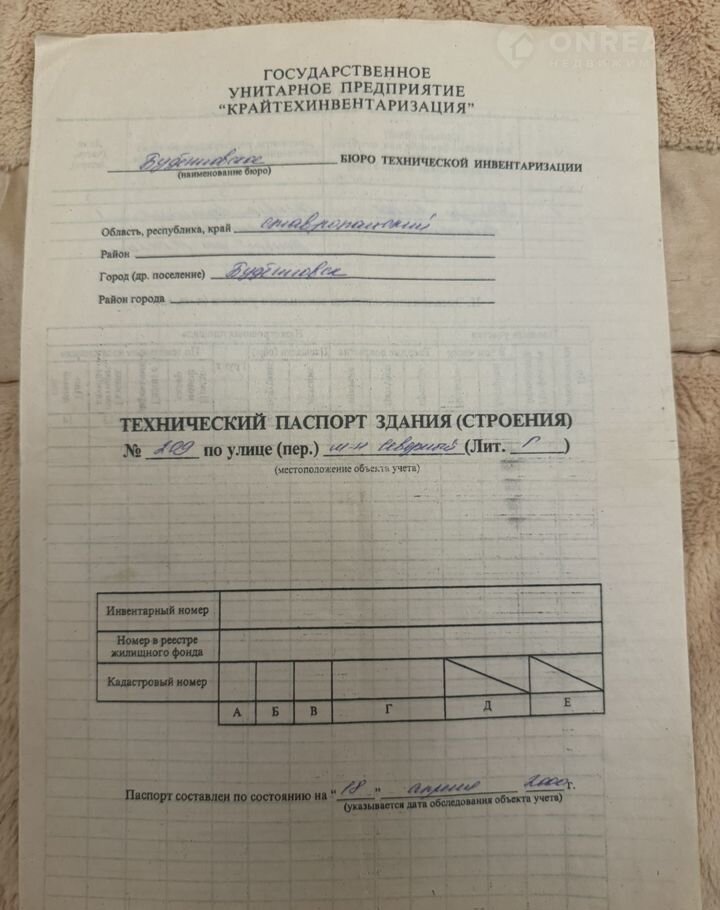 ONREA
НЕДВИЖИМ
ГОСУДАРСТВЕННОЕ
УНИТАРНОЕ ПРЕДПРИЯТИЕ
“КРАЙТЕХИНВЕНТАРИЗАЦИЯ”
Буденновское БЮРО ТЕХНИЧЕСКОЙ ИНВЕНТАРИЗАЦИИ
(наименование бюро)
Область, республика, край ставропольский
Район
Город (др. поселение) Буденновск
Район города
ТЕХНИЧЕСКИЙ ПАСПОРТ ЗДАНИЯ (СТРОЕНИЯ)
№ 209 по улице (пер.) м-н Северный (Лит. Г)
(местоположение объекта учета)
Инвентарный номер
Номер в реестре
жилищного фонда
Кадастровый номер
А Б В Г Д Е
Паспорт составлен по состоянию на “18” апреля 2000 г.
(указывается дата обследования объекта учета)